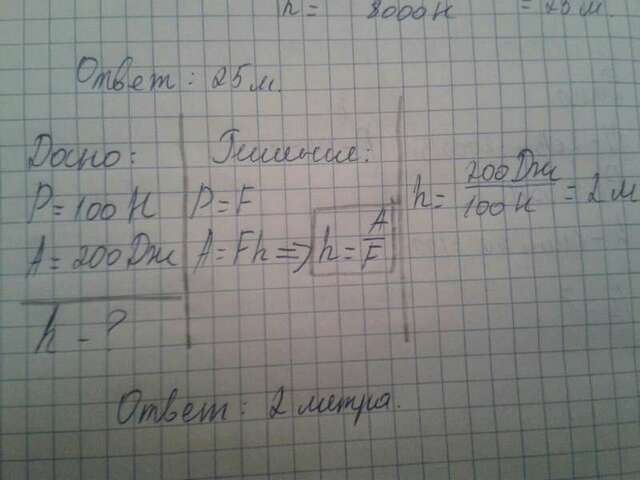 h = 8000Н = 25 м.
Ответ: 25 м.
Дано:
P = 100 Н
A = 200 Дж
h - ?
Решение:
P = F
A = Fh => h = A/F
h = 200 Дж/100 Н = 2 м
Ответ: 2 метра.